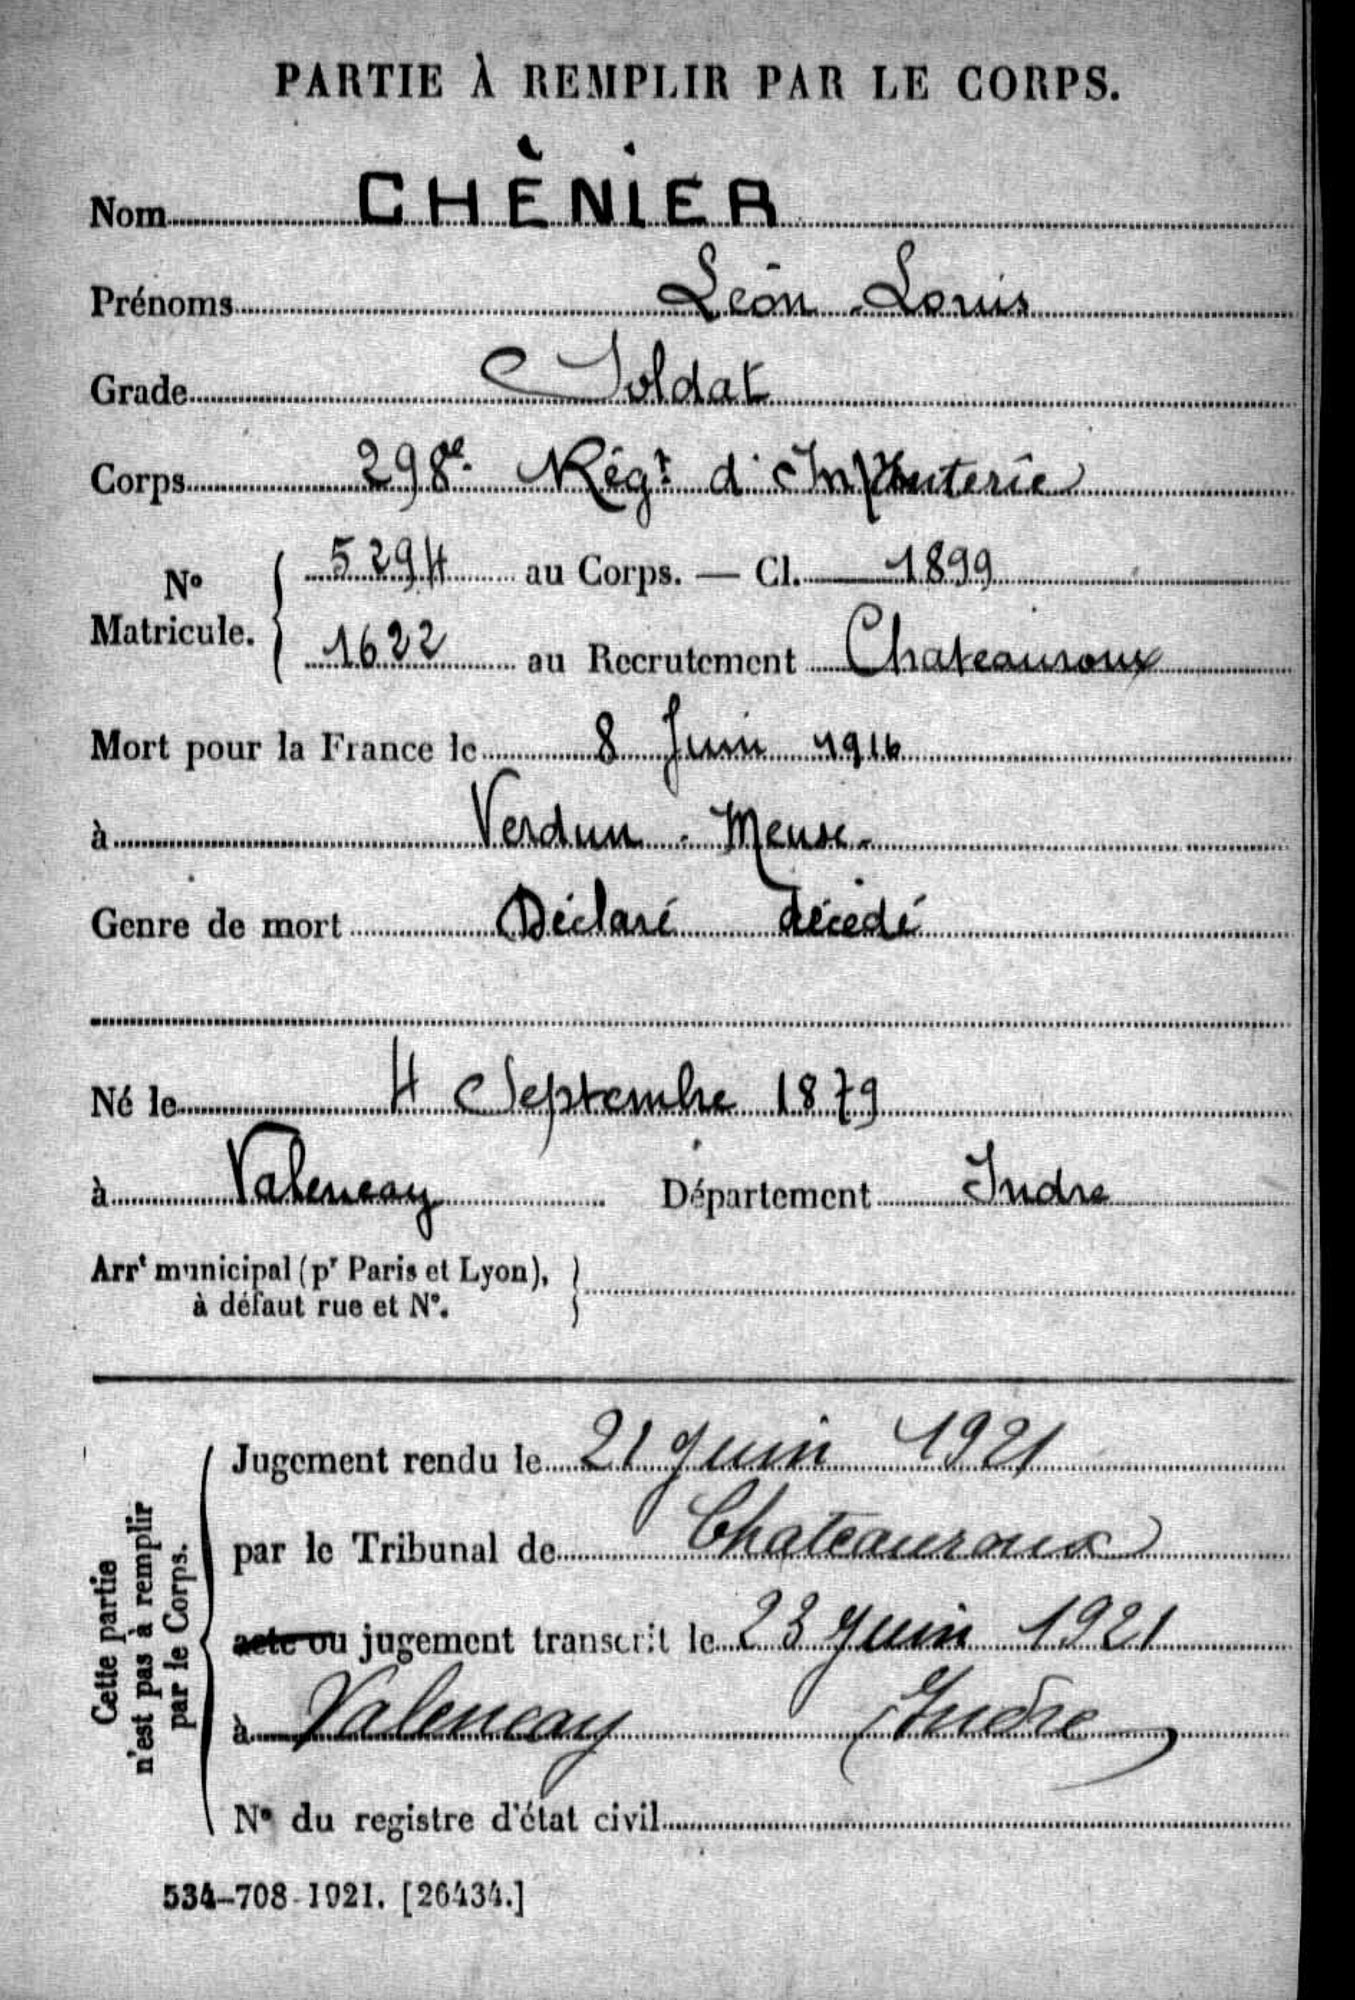 PARTIE À REMPLIR PAR LE CORPS.
Nom CHÈNIER
Prénoms Léon Louis
Grade Soldat
Corps 298e Régt d'Infanterie
No Matricule. { 5294 au Corps. — Cl. 1899
1622 au Recrutement Chateauroux
Mort pour la France le 8 Juin 1916
à Verdun - Meuse -
Genre de mort Déclaré décédé
Né le 4 Septembre 1879
à Valencay Département Indre
Arrt municipal (pr Paris et Lyon), }
à défaut rue et No.
Cette partie
n'est pas à remplir
par le Corps.
Jugement rendu le 21 Juin 1921
par le Tribunal de Chateauroux
acte ou jugement transcrit le 23 Juin 1921
à Valencay Indre
No du registre d'état civil
534-708-1921. [26434.]